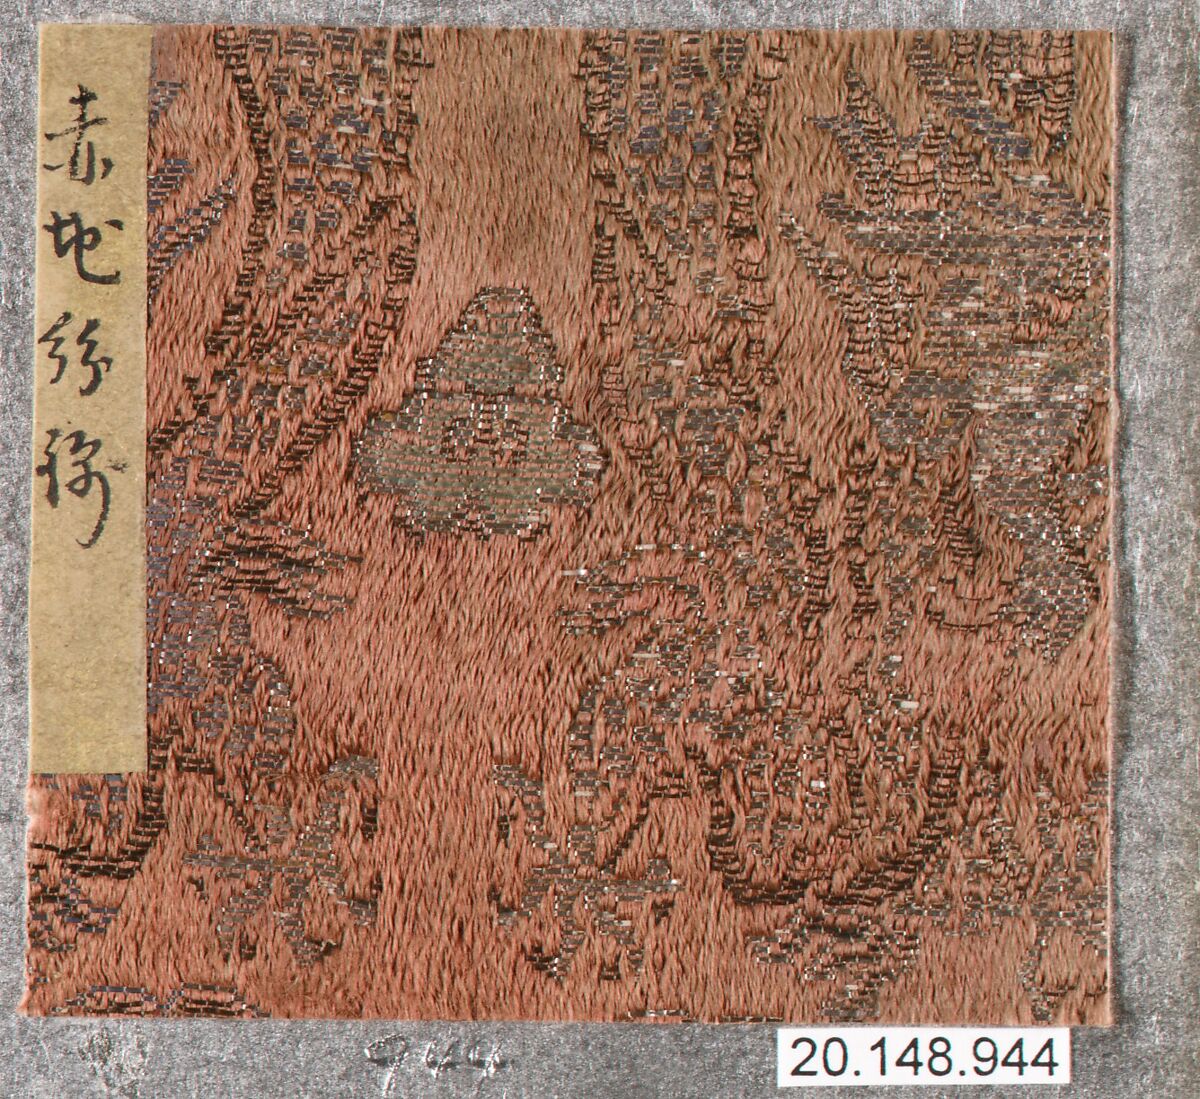 赤地絲錦
944
20.148.944